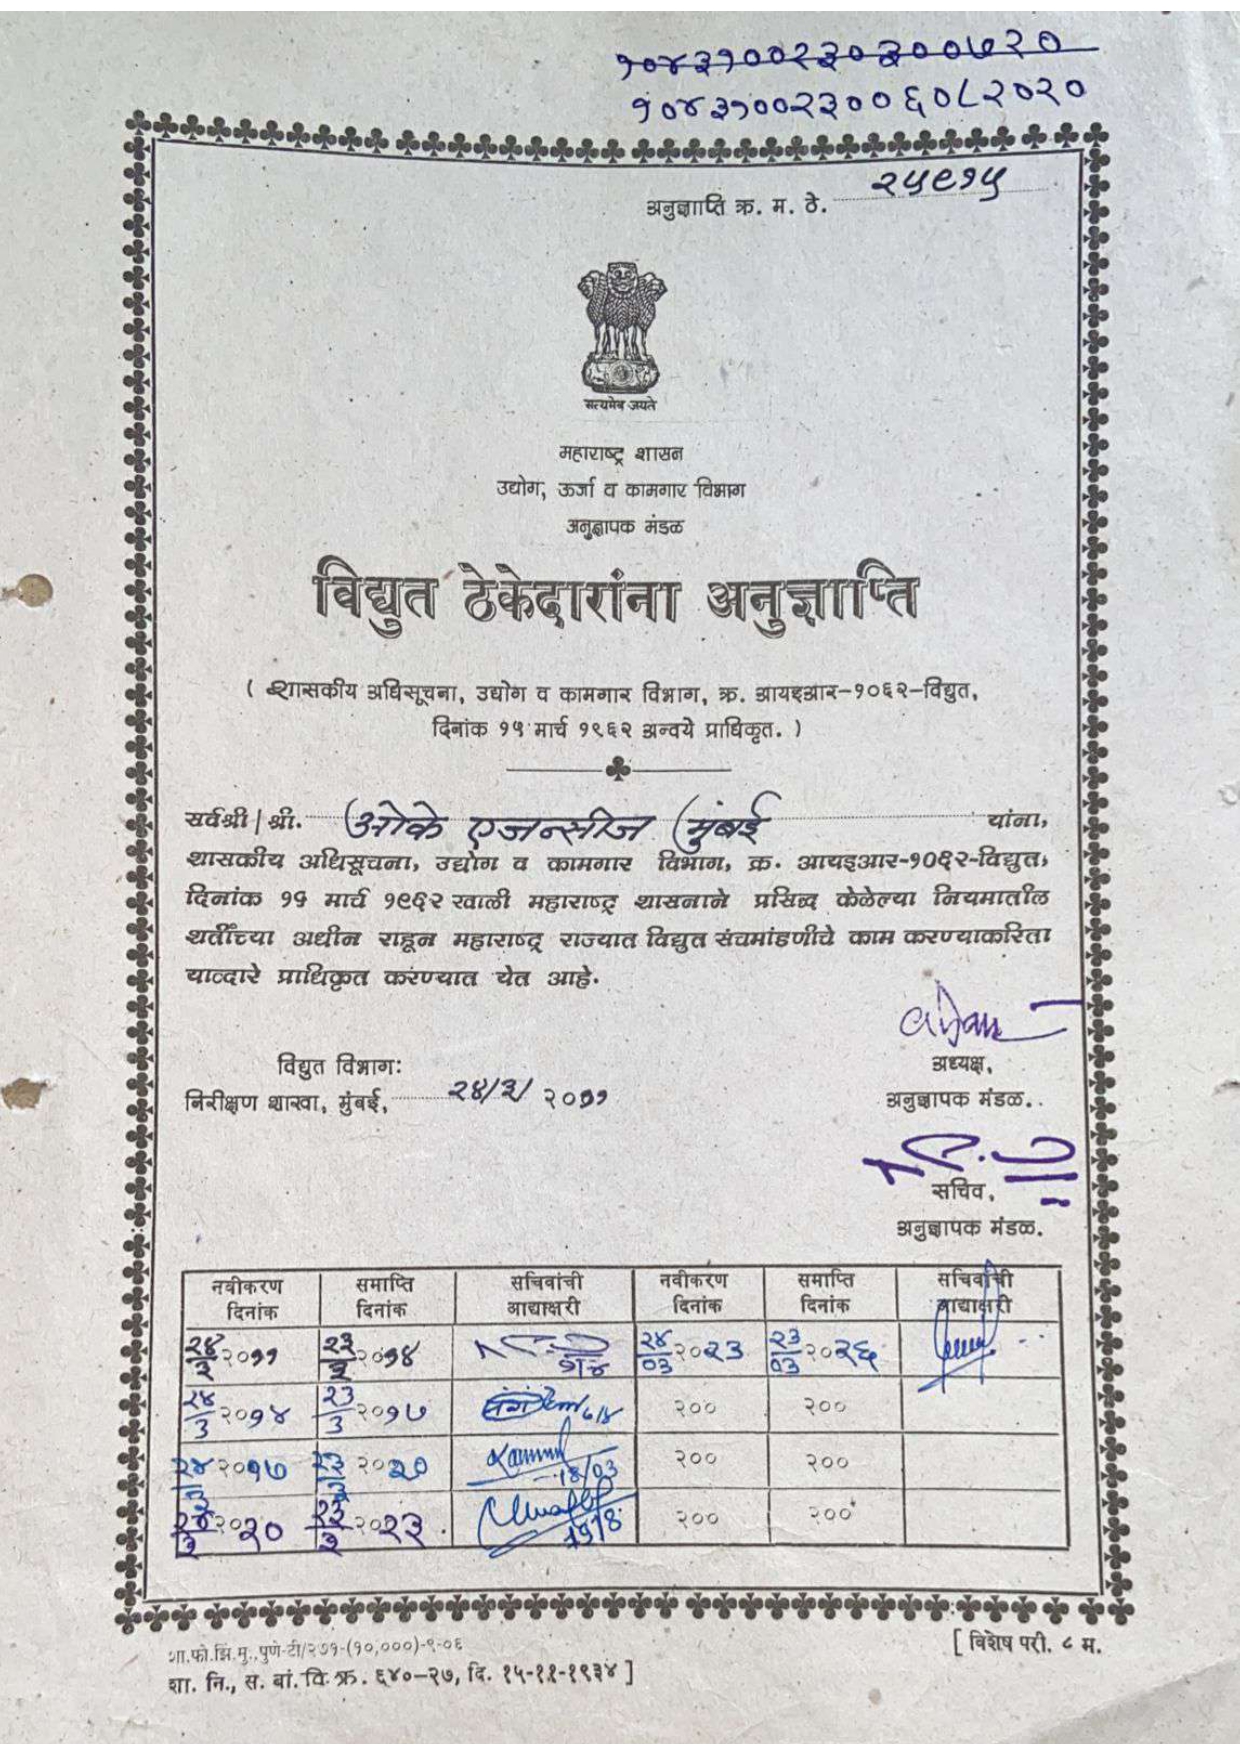 १०४३१००२३०३००७२०
१०४३१००२३००६०८२०२०
अनुज्ञाप्ति क्र. म. ठे. २५९१५
सत्यमेव जयते
महाराष्ट्र शासन
उद्योग, ऊर्जा व कामगार विभाग
अनुज्ञापक मंडळ
विद्युत ठेकेदारांना अनुज्ञाप्ति
( शासकीय अधिसूचना, उद्योग व कामगार विभाग, क्र. आयइआर-१०६२-विद्युत,
दिनांक १५ मार्च १९६२ अन्वये प्राधिकृत. )
सर्वश्री/श्री. ओके एजन्सीज (मुंबई यांना,
शासकीय अधिसूचना, उद्योग व कामगार विभाग, क्र. आयइआर-१०६२-विद्युत,
दिनांक १५ मार्च १९६२ खाली महाराष्ट्र शासनाने प्रसिद्ध केलेल्या नियमातील
शर्तीच्या अधीन राहून महाराष्ट्र राज्यात विद्युत संचमांडणीचे काम करण्याकरिता
याव्दारे प्राधिकृत करण्यात येत आहे.
अध्यक्ष,
विद्युत विभाग:
निरीक्षण शाखा, मुंबई, २४/३/ २०११
अनुज्ञापक मंडळ.
सचिव,
अनुज्ञापक मंडळ.
नवीकरण दिनांक समाप्ति दिनांक सचिवांची आद्याक्षरी नवीकरण दिनांक समाप्ति दिनांक सचिवांची आद्याक्षरी
२४/३ २०११ २३/३ २०१४ २४/03 २०२३ २३/03 २०२६
२४/3 २०१४ २३/3 २०१७ २०० २००
२४/३ २०१७ २३/३ २०२० 18/03 २०० २००
२४/३ २०२० २३/३ २०२३ २०० २००
शा.फो.झिं.मु.,पुणे-टी/२७१-(१०,०००)-९-०६
[ विशेष परी. ८ म.
शा. नि., स. बां. वि. क्र. ६४०-२७, दि. १५-११-१९३४ ]